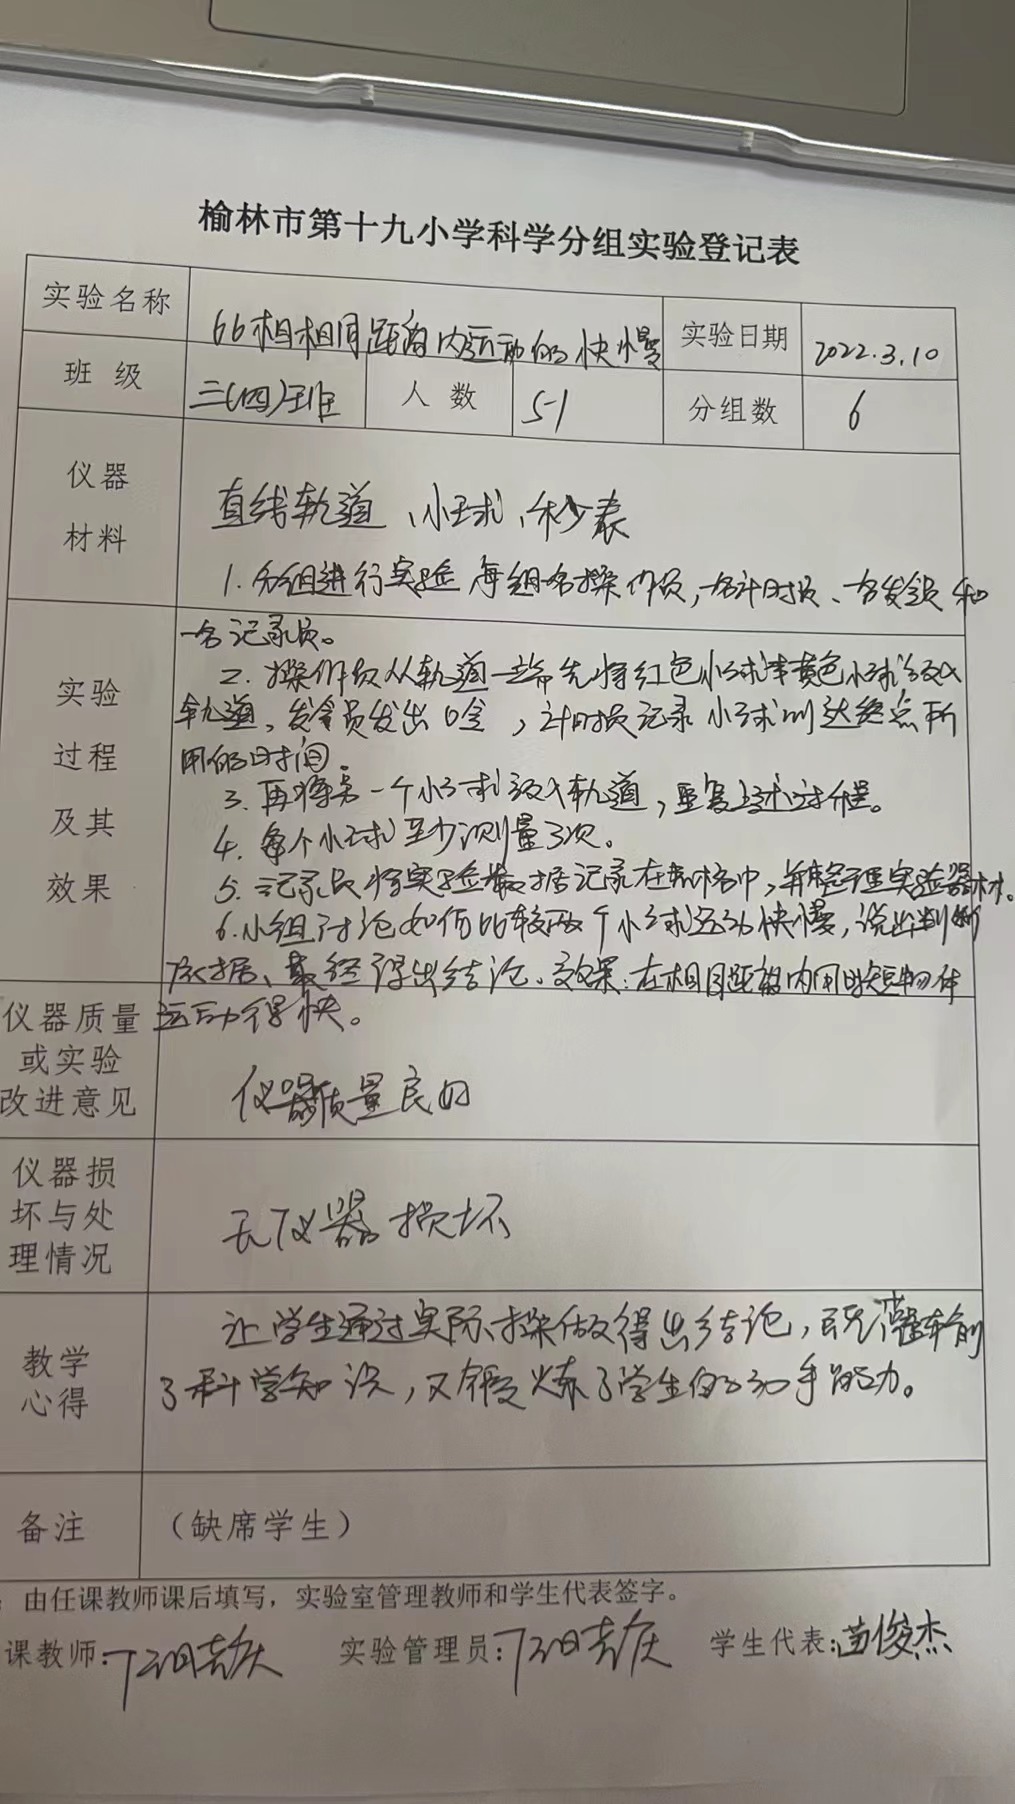 榆林市第十九小学科学分组实验登记表
实验名称 比相相同距离内运动的快慢 实验日期 2022.3.10
班 级 三(四)班 人 数 51 分组数 6
仪器材料 直线轨道、小球、秒表
实验过程及其效果
1.分组进行实验 每组一名操作员,一名计时员、一名发令员和
一名记录员。
2.操作员从轨道一端先将红色小球或黄色小球放入
轨道,发令员发出口令,计时员记录小球到达终点所
用的时间。
3.再将另一个小球放入轨道,重复上述过程。
4.每个小球至少测量3次。
5.记录员将实验数据记录在表格中,并整理实验器材。
6.小组讨论如何比较两个小球运动快慢,说出判断
依据、最终得出结论。效果:在相同距离内用时短物体
运动得快。
仪器质量或实验改进意见 仪器质量良好
仪器损坏与处理情况 无仪器损坏
教学心得
让学生通过实际操做得出结论,既灌输
了科学知识,又锻炼了学生的动手能力。
备注 (缺席学生)
:由任课教师课后填写,实验室管理教师和学生代表签字。
课教师: 实验管理员: 学生代表:苗俊杰